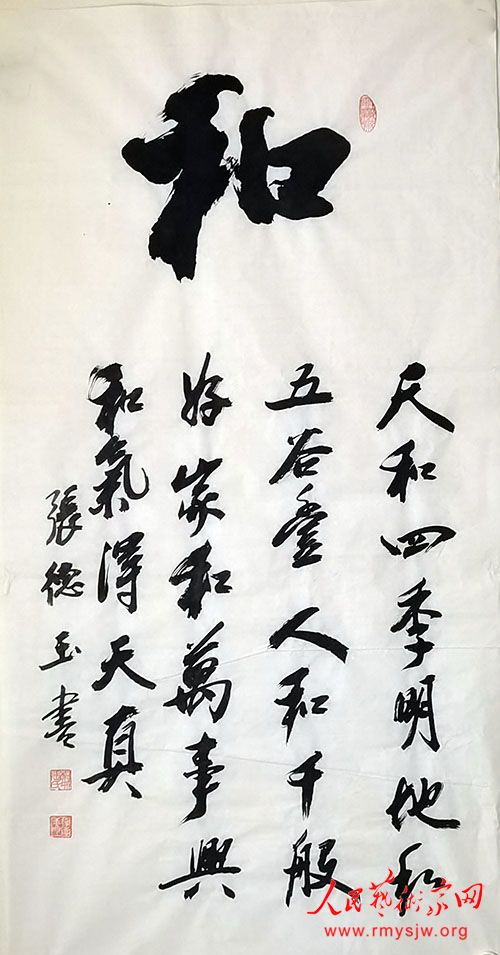 和
天和四季明地和
五谷豊人和千般
好家和萬事興
和氣得天真
張德玉書
人民藝術家网
www.rmysjw.org